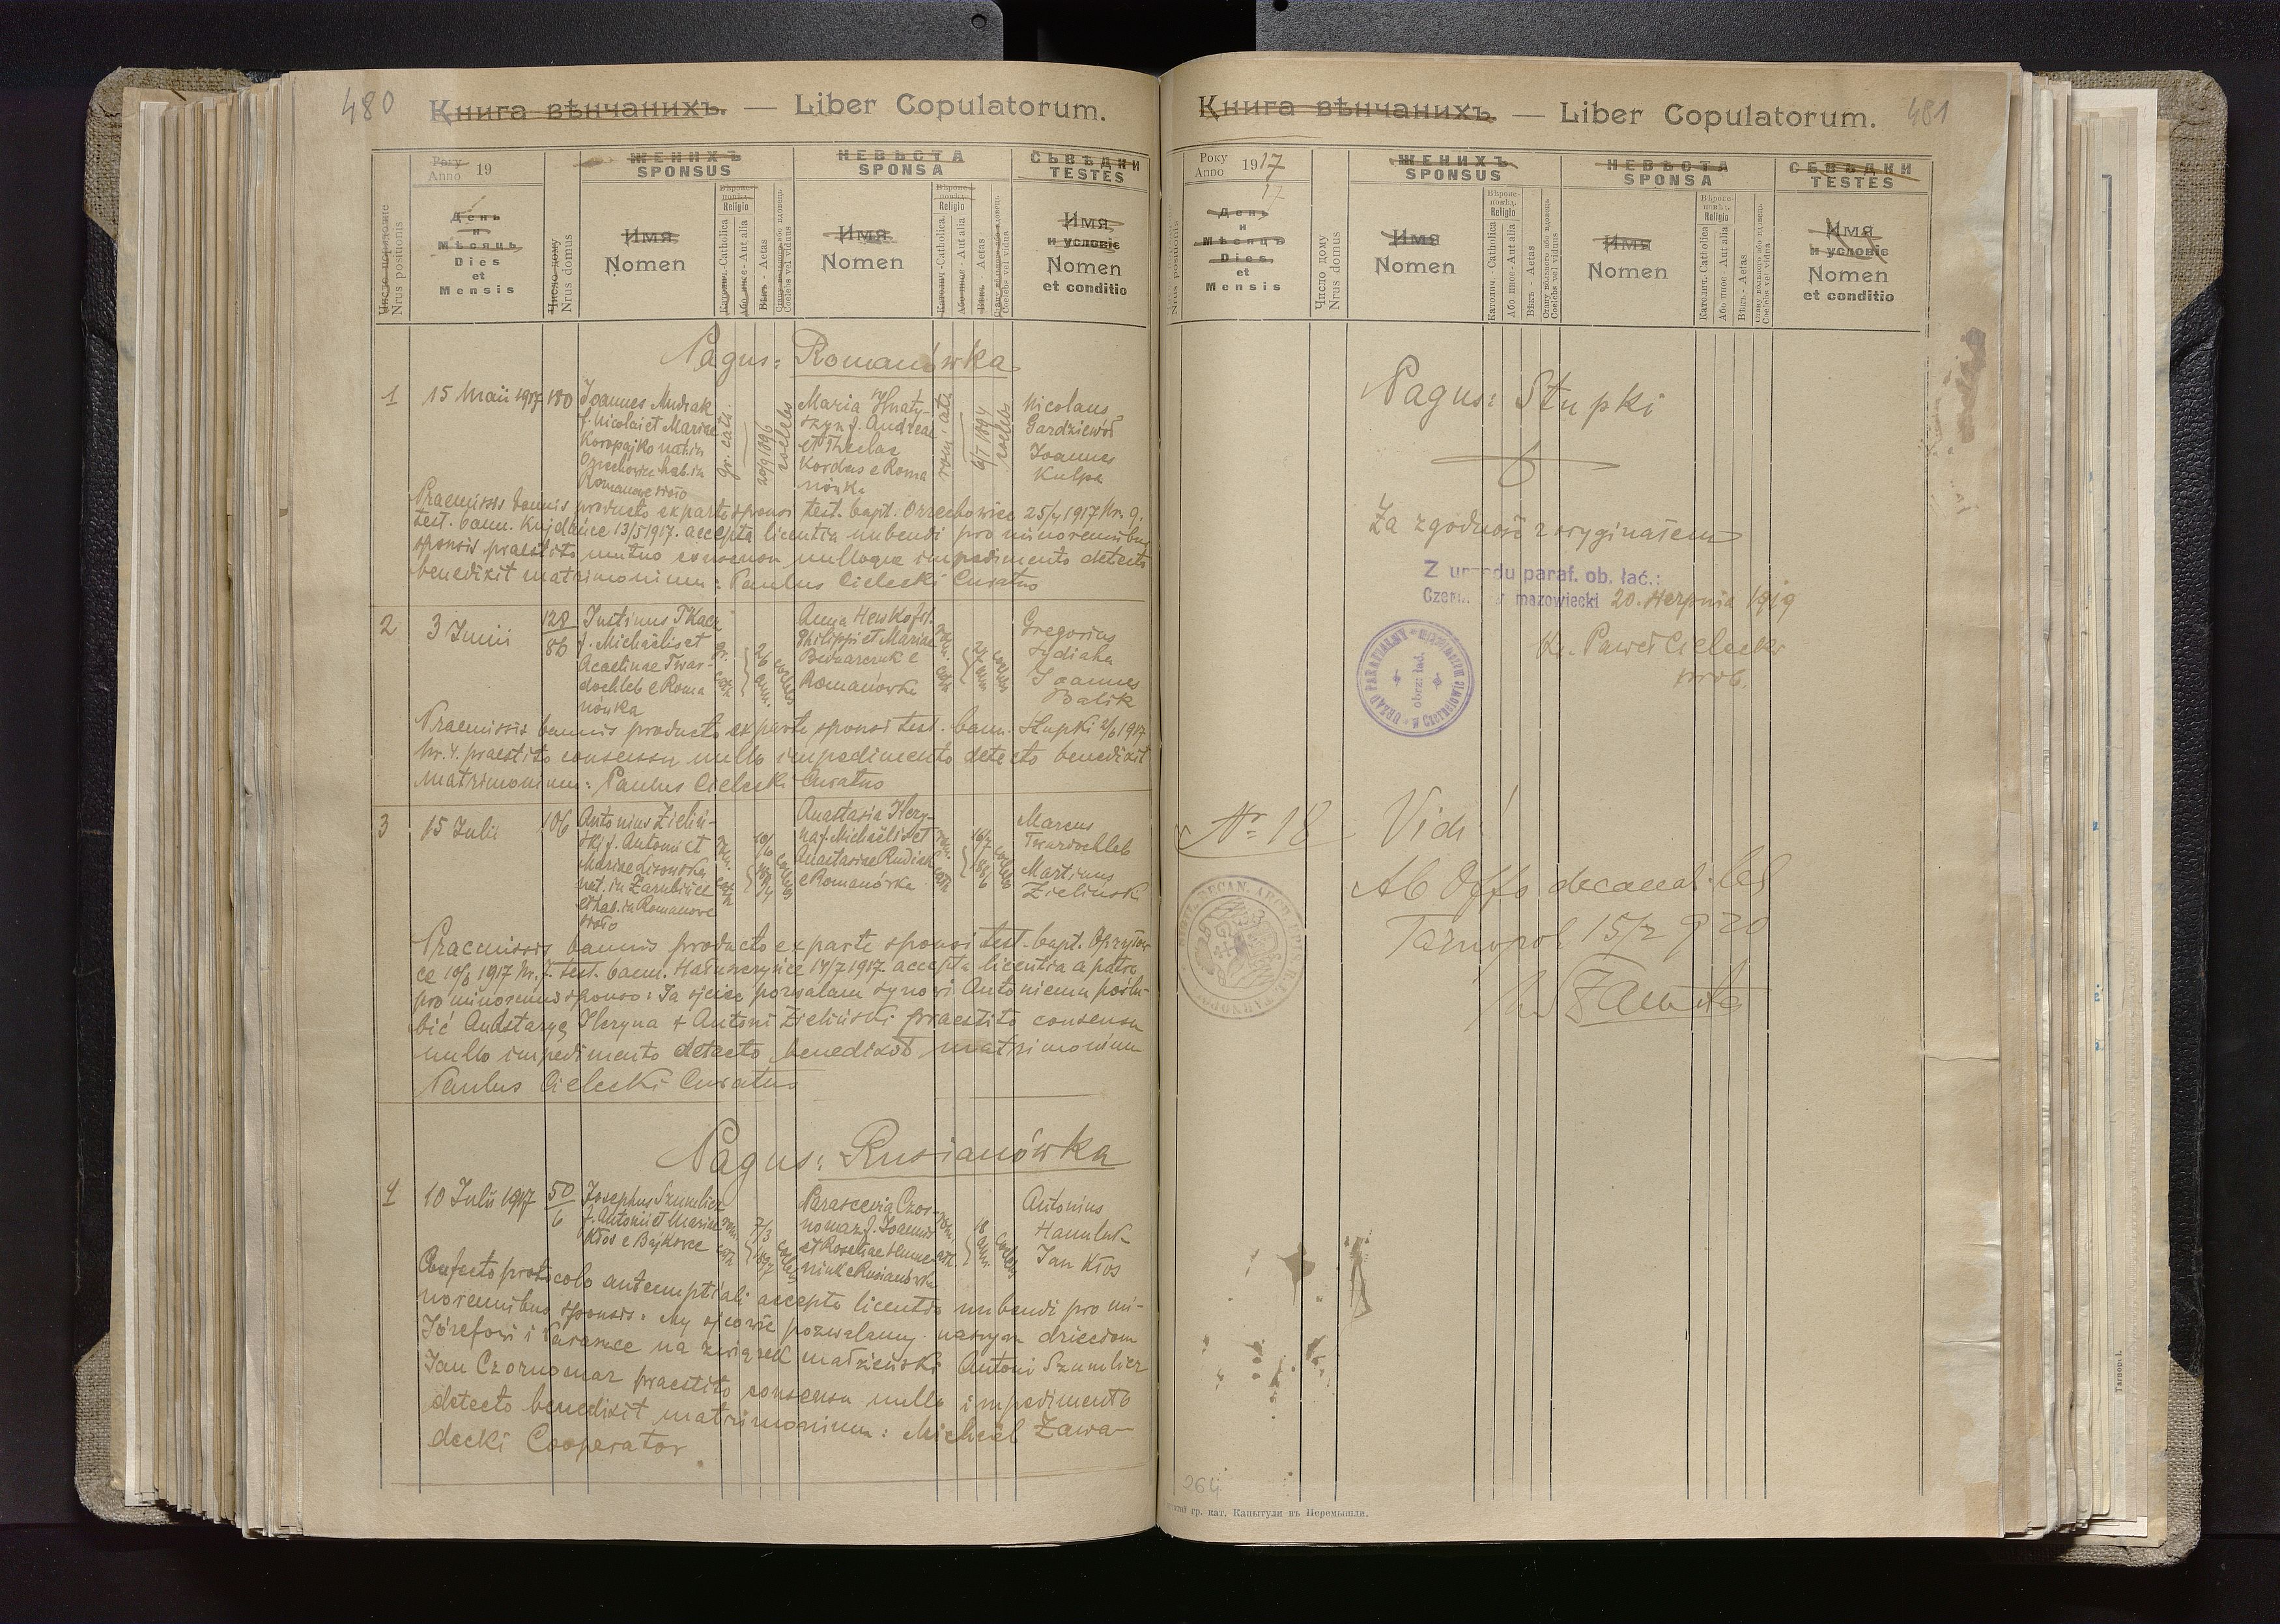 480
Книга вѣнчанихъ. — Liber Copulatorum.
Року
Anno 19
ЖЕНИХЪ
SPONSUS
НЕВѢСТА
SPONSA
СЬВѢДКИ
TESTES
Число порядкове
Nrus positionis
День
и
Мѣсяць
Dies
et
Mensis
Число дому
Nrus domus
Имя
Nomen
Religio
Католич.-Catholica
Або инос-Aut alia
Вѣкъ-Aetas
Coelebs vel viduus
Имя
Nomen
Religio
Католич.-Catholica
Або инос-Aut alia
Вѣкъ-Aetas
Coelebs vel vidua
Имя
и условіе
Nomen
et conditio
Pagus: Romanówka
1
15 Maii 1917
180
Joannes Mudrak
f. Nicolai et Mariae
Koropajko nat. in
Orzechowice hab. in
Romanowe sioło
gr. cath.
20/9 1896
coelebs
Maria Hnaty-
szyn f. Andreae
et Theclae
Kordas e Roma
nówka
rom. cath
6/I 1894
coelebs
Nicolaus
Gardziewoł
Joannes
Kulpa
Praemissis bannis producto ex parte sponsi test. bapt. Orzechowice 25/4 1917 Nr. 9.
test. bann. Kujdańce 13/5 1917. accepta licentia nubendi pro minorennibus
sponsis praestito mutuo consensu nulloque impedimento detecto
benedixit matrimonium: Paulus Cielecki Curatus
2
3 Junii
128
86
Justinus Tkacz
f. Michaëlis et
Acaelinae Twar-
dochleb e Roma
nówka
gr. cath
coelebs
Anna Henko fil.
Philippi et Mariae
Bednarczuk e
Romanówka
rom. cath
coelebs
Gregorius
Dydiaha
Joannes
Balik
Praemissis bannis producto ex parte sponsi test. bann. Stupki 2/6 1917
Nr. 4. praestito consensu nullo impedimento detecto benedixit
matrimonium: Paulus Cielecki Curatus
3
15 Julii
106
Antonius Zieliń-
ski f. Antoni et
Mariae Lisowska
nat. in Zarubińce
et hab. in Romanowe
sioło
rom. cath
10/6 1894
coelebs
Anastasia Hery-
na f. Michaëlis et
Anastasiae Rudiak
e Romanówka
rom. cath
16/7 1896
coelebs
Marcus
Twardochleb
Martinus
Zieliński
Praemissis bannis producto ex parte sponsi test. bapt. Opryłow
ce 10/6 1917 Nr. 7. test. bann. Hałuszczyńce 14/7 1917 accepta licentia a patre
pro minorenni sponso: Ja ojciec pozwalam synowi Antoniemu poślu-
bić Anastazyę Heryna + Antoni Zieliński praestito consensu
nullo impedimento detecto benedixit matrimonium
Paulus Cielecki Curatus
Pagus: Rusianówka
4
10 Julii 1917
50
6
Josephus Szumlicz
f. Antonii et Mariae
Kłos e Bajkowce
rom. cath
7/3 1897
coelebs
Parascevia Czor-
nomaz f. Joannis
et Rosaliae Hume-
niuk e Rusianówka
rom. cath
18 ann.
coelebs
Antonius
Hamulak
Jan Kłos
Confecto protocolo antenuptiali accepta licentia nubendi pro mi-
norennibus sponsis: My ojcowie pozwalamy naszym dzieciom
Józefowi i Parascę na związek małżeński Antoni Szumlicz
Jan Czornomaz praestito consensu nullo impedimento
detecto benedixit matrimonium: Michaël Zawa-
decki Cooperator
Книга вѣнчанихъ. — Liber Copulatorum.
481
Року
Anno 1917
17
ЖЕНИХЪ
SPONSUS
НЕВѢСТА
SPONSA
СЬВѢДКИ
TESTES
Nrus positionis
День
и
Мѣсяць
Dies
et
Mensis
Число дому
Nrus domus
Имя
Nomen
Religio
Католич.-Catholica
Або инос-Aut alia
Вѣкъ-Aetas
Coelebs vel viduus
Имя
Nomen
Religio
Католич.-Catholica
Або инос-Aut alia
Вѣкъ-Aetas
Coelebs vel vidua
Имя
и условіе
Nomen
et conditio
Pagus: Stupki
Za zgodność z oryginałem
Z urzędu paraf. ob. łać.:
mazowiecki 20. sierpnia 1919
Ks. Paweł Cielecki
prob.
URZĄD PARAFIALNY
obrz. łać.
Nr 18
Vidi
Ab Offo decanali
Tarnopol 15/2 920
264
гр. кат. Капытули въ Перемышли.
Tarnopol.